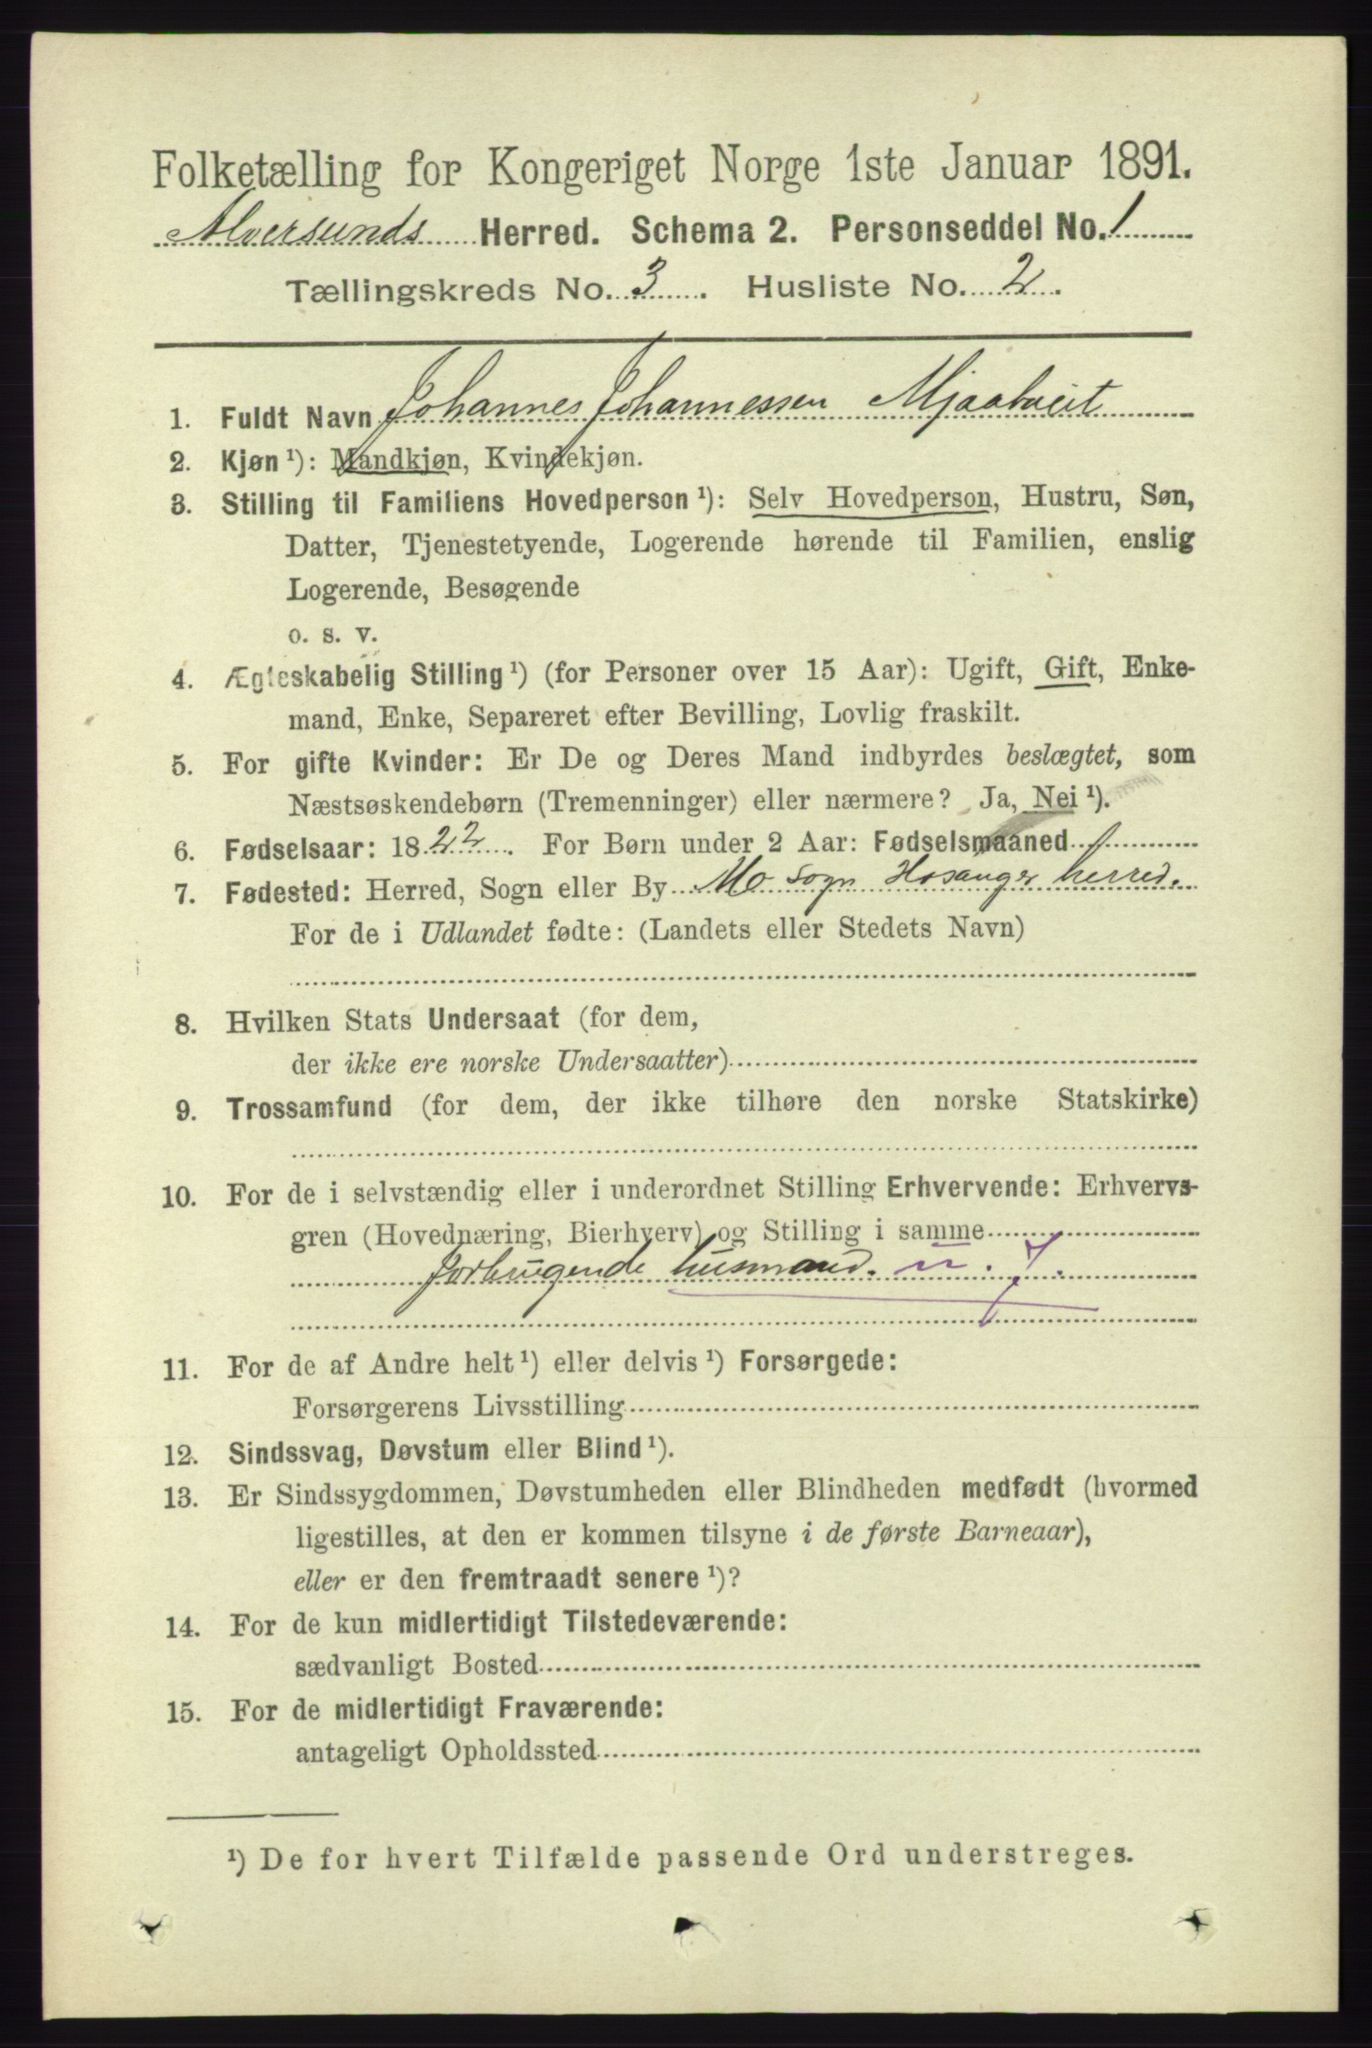 Folketælling for Kongeriget Norge 1ste Januar 1891.
Alversunds Herred. Schema 2. Personseddel No. 1
Tællingskreds No. 3. Husliste No. 2.
1. Fuldt Navn Johannes Johannessen Mjaatveit
2. Kjøn ¹): Mandkjøn, Kvindekjøn.
3. Stilling til Familiens Hovedperson ¹): Selv Hovedperson, Hustru, Søn,
Datter, Tjenestetyende, Logerende hørende til Familien, enslig
Logerende, Besøgende
o. s. v.
4. Ægteskabelig Stilling ¹) (for Personer over 15 Aar): Ugift, Gift, Enke-
mand, Enke, Separeret efter Bevilling, Lovlig fraskilt.
5. For gifte Kvinder: Er De og Deres Mand indbyrdes beslægtet, som
Næstsøskendebørn (Tremenninger) eller nærmere? Ja, Nei ¹).
6. Fødselsaar: 1822. For Børn under 2 Aar: Fødselsmaaned
7. Fødested: Herred, Sogn eller By Mo sogn Hosanger herred.
For de i Udlandet fødte: (Landets eller Stedets Navn)
8. Hvilken Stats Undersaat (for dem,
der ikke ere norske Undersaatter)
9. Trossamfund (for dem, der ikke tilhøre den norske Statskirke)
10. For de i selvstændig eller i underordnet Stilling Erhvervende: Erhvervs-
gren (Hovednæring, Bierhverv) og Stilling i samme
jorbrugende husmand. n. j.
11. For de af Andre helt ¹) eller delvis ¹) Forsørgede:
Forsørgerens Livsstilling
12. Sindssvag, Døvstum eller Blind ¹).
13. Er Sindssygdommen, Døvstumheden eller Blindheden medfødt (hvormed
ligestilles, at den er kommen tilsyne i de første Barneaar),
eller er den fremtraadt senere ¹)?
14. For de kun midlertidigt Tilstedeværende:
sædvanligt Bosted
15. For de midlertidigt Fraværende:
antageligt Opholdssted
¹) De for hvert Tilfælde passende Ord understreges.